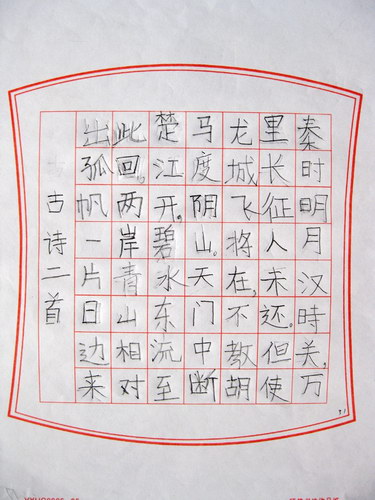 秦时明月汉時关,万
里长征人未还。但使
龙城飞将在,不教胡
马度阴山。天门中断
楚江开。碧水东流至
此回,两岸青山相对
出孤帆一片日边来
古诗二首